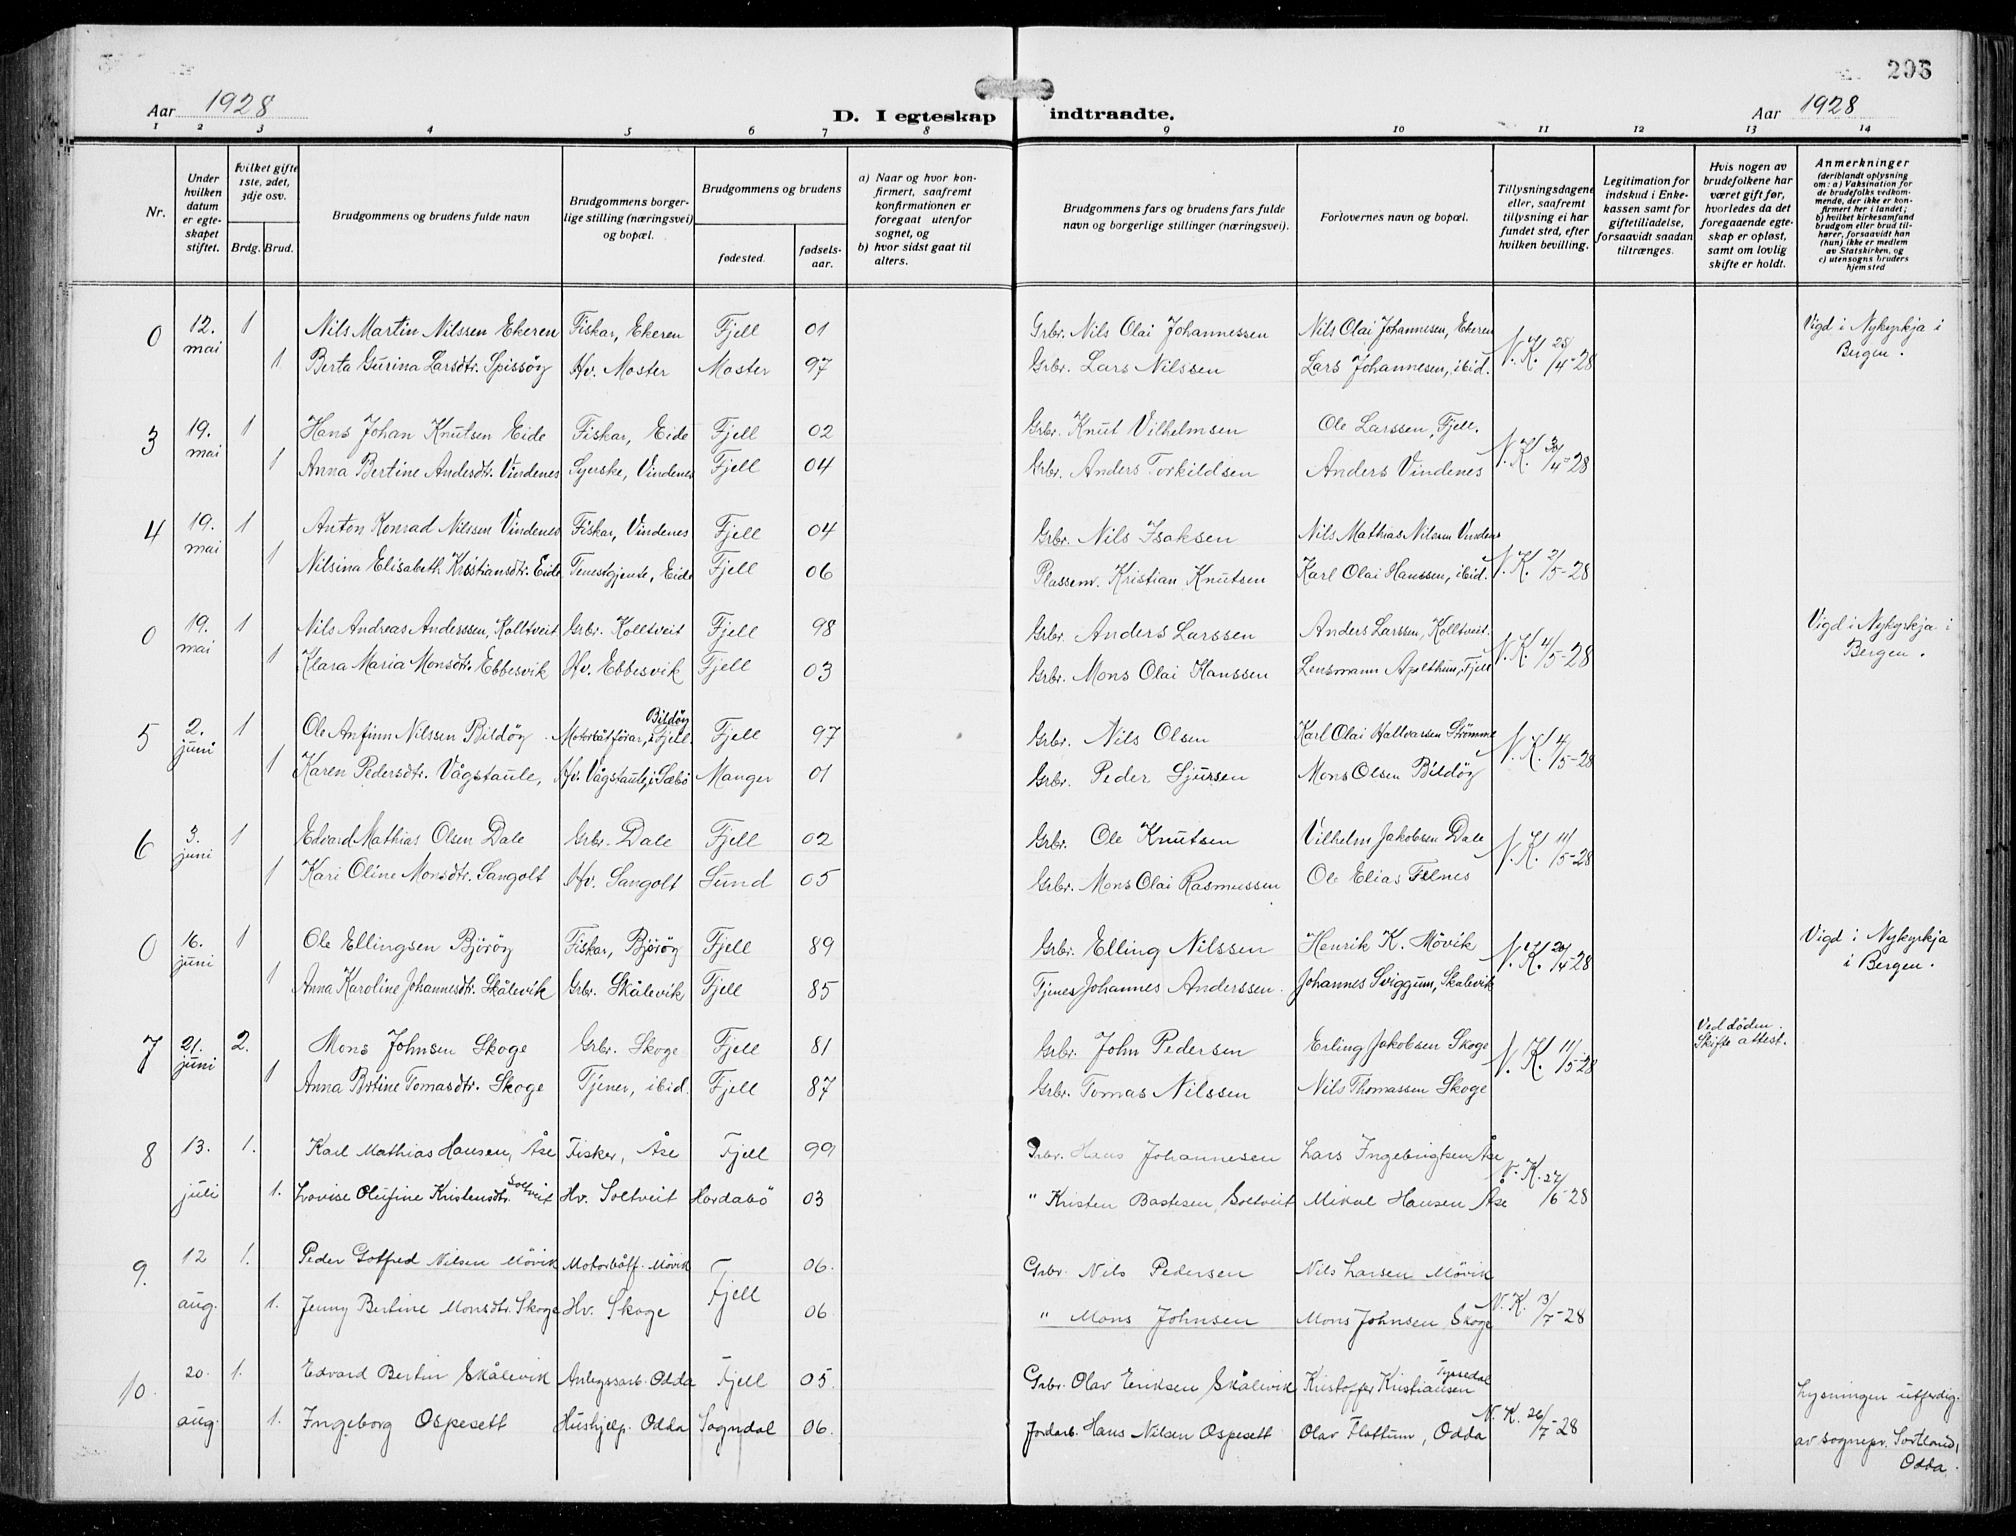 Aar 1928
D. I egteskap indtraadte.
Aar 1928
1 2 3 4 5 6 7 8 9 10 11 12 13 14
Nr.
Under hvilken datum er egteskapet stiftet.
hvilket gifte 1ste, 2det, 3dje osv.
Brdg. Brud.
Brudgommens og brudens fulde navn
Brudgommens borgerlige stilling (næringsvei) og bopæl.
Brudgommens og brudens
fødested.
fødselsaar.
a) Naar og hvor konfirmert, saafremt konfirmationen er foregaat utenfor sognet, og
b) hvor sidst gaat til alters.
Brudgommens fars og brudens fars fulde navn og borgerlige stillinger (næringsvei).
Forlovernes navn og bopæl.
Tillysningsdagene eller, saafremt tillysning ei har fundet sted, efter hvilken bevilling.
Legitimation for indskud i Enkekassen samt for giftetilladelse, forsaavidt saadan tiltrænges.
Hvis nogen av brudefolkene har været gift før, hvorledes da det foregaaende egteskap er opløst, samt om lovlig skifte er holdt.
Anmerkninger (deriblandt oplysning om: a) Vaksination for de brudefolks vedkommende, der ikke er konfirmert her i landet; b) hvilket kirkesamfund brudgom eller brud tilhører, forsaavidt han (hun) ikke er medlem av Statskirken, og c) utensogns bruders hjemsted
0 12. mai 1 Nils Martin Nilssen Ekeren Fiskar, Ekeren Fjell 01 Grbr. Nils Olai Johannessen Nils Olai Johannesen, Ekeren N. K. 28/4-28 Vigd i Nykyrkja i Bergen.
1 Berta Gurina Larsdtr. Spissøy Hv. Moster Moster 97 Grbr. Lars Nilssen Lars Johannesen, ibid.
3 19. mai 1 Hans Johan Knutsen Eide Fiskar, Eide Fjell 02 Grbr. Knut Vilhelmsen Ole Larssen, Fjell. N. K. 30/4-28
1 Anna Bertine Andersdtr. Vindenes Syerske, Vindenes Fjell 04 Grbr. Anders Torkildsen Anders Vindenes
4 19. mai 1 Anton Konrad Nilssen Vindenes Fiskar, Vindenes Fjell 04 Grbr. Nils Isaksen Nils Mathias Nilsen Vindenes N. K. 2/5-28
1 Nilsina Elisabeth Kristiansdtr. Eide Tenestgjente, Eide Fjell 06 Plassem. Kristian Knutsen Karl Olai Hanssen, ibid.
0 19. mai 1 Nils Andreas Anderssen, Kolltveit Grbr. Kolltveit Fjell 98 Grbr. Anders Larssen Anders Larssen, Kolltveit. N. K. 4/5-28 Vigd i Nykyrkja i Bergen.
1 Klara Maria Monsdtr. Ebbesvik Hv. Ebbesvik Fjell 03 Grbr. Mons Olai Hanssen Lensmann Apelthun, Fjell
5 2. juni 1 Ole Anfinn Nilssen Bildøy Motorbåtførar, Bildøy i Fjell. Fjell 97 Grbr. Nils Olsen Karl Olai Hallvarsen Strømme N. K. 4/5-28
1 Karen Pedersdtr. Vågstaule, Hv. Vågstaule, i Sæbø Manger 01 Grbr. Peder Sjursen Mons Olsen Bildøy
6 3. juni 1 Edvard Mathias Olsen Dale Grbr. Dale Fjell 02 Grbr. Ole Knutsen Vilhelm Jakobsen Dale N. K. 11/5-28
1 Kari Oline Monsdtr. Sangolt Hv. Sangolt Sund 05 Grbr. Mons Olai Rasmussen Ole Elias
0 16. juni 1 Ole Ellingsen Bjørøy Fiskar, Bjørøy Fjell 89 Grbr. Elling Nilssen Henrik K. Møvik N. K. 20/4-28 Vigd i Nykyrkja i Bergen.
1 Anna Karoline Johannesdtr. Skålevik Grbr. Skålevik Fjell 85 Tjener Johannes Anderssen. Johannes Sviggum, Skålevik
7 21. juni 2. Mons Johnsen Skoge Grbr. Skoge Fjell 81 Grbr. John Pedersen Erling Jakobsen Skoge N. K. 11/5-28 Ved døden. Skifte attest.
1 Anna Brtine Tomasdtr. Skoge Tjener, ibid. Fjell 87 Grbr. Tomas Nilssen Nils Thomassen Skoge
8 13. juli 1. Karl Mathias Hansen, Åse Fisker, Åse Fjell 99 Grbr. Hans Johannesen Lars Ingebrigtsen Åse N. K. 27/6-28
1. Lovise Olufine Kristensdtr. Soltveit Hv. Soltveit Hordabø 03 " Kristen Bastesen, Soltveit Mikal Hansen Åse
9. 12 aug. 1. Peder Gotfred Nilsen Møvik Motorbåtf. Møvik Fjell 06. Grbr. Nils Pedersen Nils Larsen Møvik N. K. 13/7-28
1. Jenny Bertine Monsdtr. Skoge Hv. Skoge 06. " Mons Johnsen Mons Johnsen Skoge
10. 20. aug. 1. Edvard Bertin Skålevik Anlegsarb. Odda Fjell 05. Grbr. Olav Eriksen Skålevik Kristoffer Kristiansen Tyssedal N. K. 26/7-28 Lysningen utferdig. av sognepr. Sortland, Odda.
1. Ingeborg Ospesett Hushjelp. Odda Sogndal 06. Jordarb. Hans Nilsen Ospesett Olav Flottum, Odda